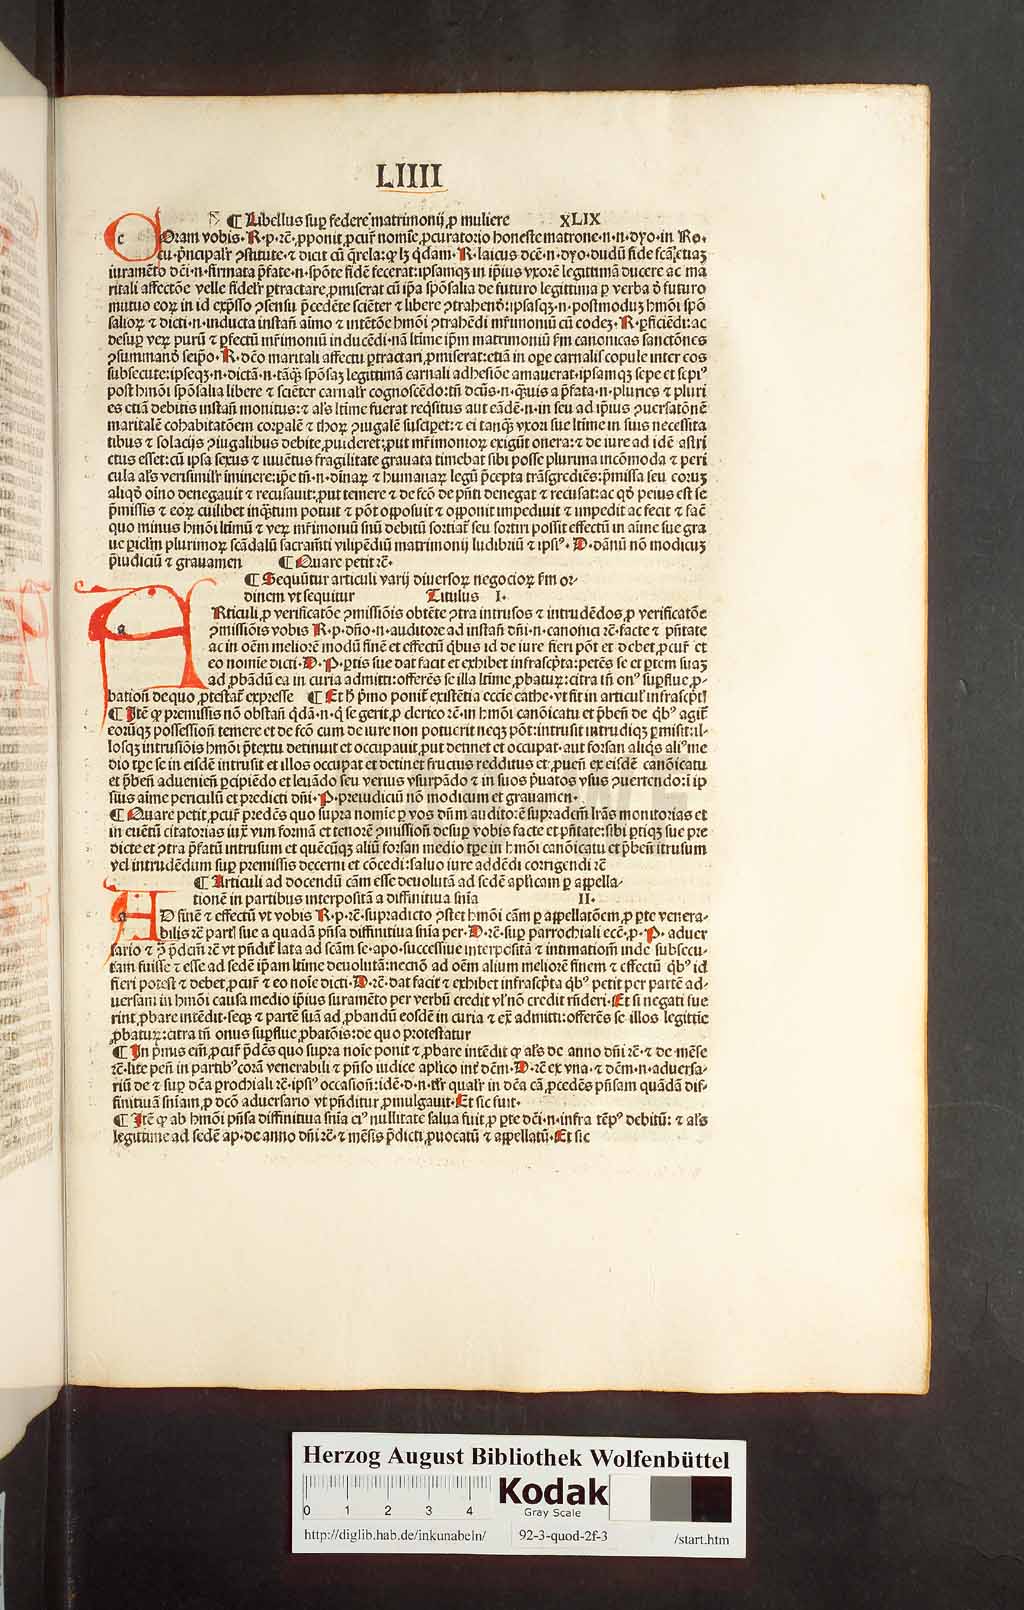 LIIII
¶ Libellus sup̱ federe matrimonij ꝓ muliere XLIX
COram vobis·R·p·rē·ꝓponit ꝓcur̄ nomīe ꝓcuratorio honeste matrone·n·n·dyo·in Ro·
cu·p̄ncipalr̄ ꝯstitute·⁊ dicit cū q̄rela: ꝙ lꝫ q̄dam·R·laicus dcē·n·dyo·dudū fide scā ⁊ etiaꝫ
iuramēto dc̄i·n·firmata p̄fate·n·spōte fidē fecerat: ipsamqꝫ in ip̄ius vxorē legittimā ducere ac ma
ritali affectōe velle fidelr̄ ptractare ꝓmiserat cū ip̄a spōsalia de futuro legittima p̱ verba d̄ futuro
mutuo eoꝝ in id exp̄sso ꝯsensu p̄cedēte sciēter ⁊ libere ꝯtrahend̄: ipsasqꝫ·n·postmoduꝫ hmōi spō
salioꝝ ⁊ dicti·n·inducta instan̄ aīmo ⁊ intētōe hmōi ꝯtrahēdi mr̄imoniū cū eodeꝫ·R·ꝑficiēdi: ac
desuꝑ veꝝ purū ⁊ ꝑfectū mr̄imoniū inducēdi·nā ltīme ip̄m matrimoniū s̄m canonicas sanctōnes
ꝯsummand̄ seip̄o·R·dc̄o maritali affectu ꝑtractari ꝓmiserat: etiā in ope carnalis copule inter eos
subsecute: ipseqꝫ·n·dictā·n·tāq̄ꝫ spōsaꝫ legittimā carnali adhesiōe amauerat·ipsamqꝫ sepe et sepiꝰ
post hmōi spōsalia libere ⁊ sciēter carnalr̄ cognoscēdo: tn̄ dcūs·n·q̄uis a p̄fata·n·pluries ⁊ pluri
es etiā debitis instan̄ monitus: ⁊ al̄s ltīme fuerat req̄situs aut eādē·n·in seu ad ip̄ius ꝯuersatōnē
maritalē cohabitatōem corꝑalē ⁊ thoꝝ ꝯiugalē susciꝑet: ⁊ ei tanq̄ꝫ vxori sue ltīme in suis necessita
tibus ⁊ solacijs ꝯiugalibus debite ꝓuideret: put mr̄imonioꝝ exigūt onera: ⁊ de iure ad idē astri
ctus esset: cū ipsa sexus ⁊ iuuētus fragilitate grauata timebat sibi posse plurima incōmoda ⁊ peri
cula al̄s verisimilr̄ īminere: ip̄e tn̄·n·dīnaꝝ ⁊ humanaꝝ legū p̄cepta trāsgrediēs: p̄missa seu eoruꝫ
aliqd̄ oīno denegauit ⁊ recusauit: put temere ⁊ de fcō de pn̄ti denegat ⁊ recusat: ac qd̄ peius est se
p̄missis ⁊ eoꝝ cuilibet inq̄tum potuit ⁊ pōt opposuit ⁊ opponit impediuit ⁊ impedit ac fecit ⁊ facē
quo minus hmōi ltīmū ⁊ veꝝ mr̄imoniū suū debitū sortiat̄ seu sortiri possit effectū in aīme sue gra
ue ꝑiclm̄ plurimoꝝ scādalū sacram̄ti vilipēdiū matrimonij ludibriū ⁊ ipsiꝰ·D·dānū nō modicuꝫ
p̄iudiciū ⁊ grauamen ¶ Quare petit rē·
¶ Sequūtur articuli varij diuersoꝝ negocioꝝ s̄m or-
dinem vt sequitur Titulus I·
ARticuli ꝓ verificatōe ꝯmissiōis obtēte ꝯtra intrusos ⁊ intrudēdos ꝓ verificatōe
ꝯmissiōis vobis R·p·dn̄o·n·auditore ad instan̄ dn̄i·n·canonici rē·facte ⁊ pn̄tate
ac in oēm meliorē modū finē et effectū q̄bus id de iure fieri pōt et debet ꝓcur̄ et
eo nomīe dicti·D·P·ꝑtis sue dat facit et exhibet infrascp̄ta: petēs se et ꝑtem suaꝫ
ad ꝓbādū ea in curia admitti: offerēs se illa ltīme ꝓbatuꝝ: citra tn̄ onꝰ suꝑflue ꝓ-
bation̄ de quo ꝓtestat̄ expresse ¶ Et h̄ pīmo ponit̄ existētia eccīe cathe·vt sit in articul̄ infrascp̄tꝭ
¶ Itē ꝙ premissis nō obstan̄ q̄dā·n·q̄ se gerit ꝓ clerico rē·in hmōi canōicatu et p̄ben̄ de q̄bꝰ agit̄
eorūqꝫ possession̄ temere et de fcō cum de iure non potuerit neqꝫ pōt: intrusit intrudiqꝫ ꝑmisit: il-
losqꝫ intrusiōis hmōi p̄textu detinuit et occupauit ꝓut detinet et occupat·aut forsan aliq̄s aliꝰ me
dio tꝑe se in eisdē intrusit et illos occupat et detinet fructus redditus et ꝓuen̄ ex eisdē canōicatu
et p̄ben̄ aduenien̄ ꝑcipiēdo et leuādo seu verius vsurpādo ⁊ in suos p̄uatos vsus ꝯuertendo: ī ip
sius aīme periculū et predicti dn̄i·P·preiudiciū nō modicum et grauamen·
¶ Quare petit ꝓcur̄ predēs quo supra nomīe ꝑ vos dn̄m auditorē supradcm̄ lr̄ās monitorias et
in euētū citatorias iuxͭ vim formā et tenorē ꝯmission̄ desuꝑ vobis facte et pn̄tate: sibi ꝑtiqꝫ sue pre
dicte et ꝯtra p̄fatū intrusum et quēcūqꝫ aliū forsan medio tꝑe in hmōi canōicatu et p̄ben̄ ītrusum
vel intrudēdum suꝑ premissis decerni et cōcedi: saluo iure addēdi corrigendi rē
¶ Articuli ad docendū cām esse deuolutā ad sedē aplīcam ꝑ appella-
tionē in partibus interpositā a diffinitiua sn̄ia II·
AD finē ⁊ effectū vt vobis R·p·rē·supradicto ꝯstet hmōi cām ꝑ appellatōem ꝓ ꝑte venera-
bilis rē part̄ sue a quadā pn̄sa diffinitiua sn̄ia per·D·rē·suꝑ parrochiali ecc̄e·ꝓ·P·aduer
sario ⁊ ꝯͭ p̄dcm̄ rē vt pn̄dit̄ lata ad scām se·apo·successiue interpositā ⁊ intimatiom̄ inde subsecu-
tam fuisse ⁊ esse ad sedē ip̄am ltīme deuolutā: necnō ad oēm alium meliorē finem ⁊ effectū q̄bꝰ id
fieri potest ⁊ debet ꝓcur̄ ⁊ eo noīe dicti·D·rē·dat facit ⁊ exhibet infrascp̄ta q̄bꝰ petit per partē ad-
uersam in hmōi causa medio ip̄ius iuramēto per verbū credit vl̄ nō credit rn̄deri·Et si negati fue
rint ꝓbare intēdit·seqꝫ ⁊ partē suā ad ꝓbandū eosdē in curia ⁊ exͭ admitti: offerēs se illos legittīe
ꝓbatuꝝ: citra tn̄ onus suꝑflue ꝓbatōis: de quo protestatur
¶ In p̄mis em̄ ꝓcur̄ p̄dēs quo supra noīe ponit ⁊ ꝓbare intēdit ꝙ al̄s de anno dn̄i rē·⁊ de mēse
rē·lite pen̄ in partibꝰ corā venerabili ⁊ pn̄so iudice aplīco int̄ dēm·D·rē ex vna·⁊ dēm·n·aduersa-
riū de ⁊ suꝑ dc̄a ꝑrochiali rē·ipsiꝰ occasion̄: idē·D·n·tr̄ qualr̄ in dc̄a cā ꝓcedēs pn̄sam quādā dif-
finitiuā sn̄iam ꝓ dcō aduersario vt pn̄ditur ꝓmulgauit·Et sic fuit·
¶ Itē ꝙ ab hmōi pn̄sa diffinitiua sn̄ia eiꝰ nullitate salua fuit ꝓ ꝑte dc̄i·n·infra tēpꝰ debitū: ⁊ al̄s
legittime ad sedē ap·de anno dn̄i rē·⁊ mēsis p̄dicti ꝓuocatū ⁊ appellatū·Et sic
Herzog August Bibliothek Wolfenbüttel
0 1 2 3 4
Kodak
Gray Scale
http://diglib.hab.de/inkunabeln/ 92-3-quod-2f-3 /start.htm